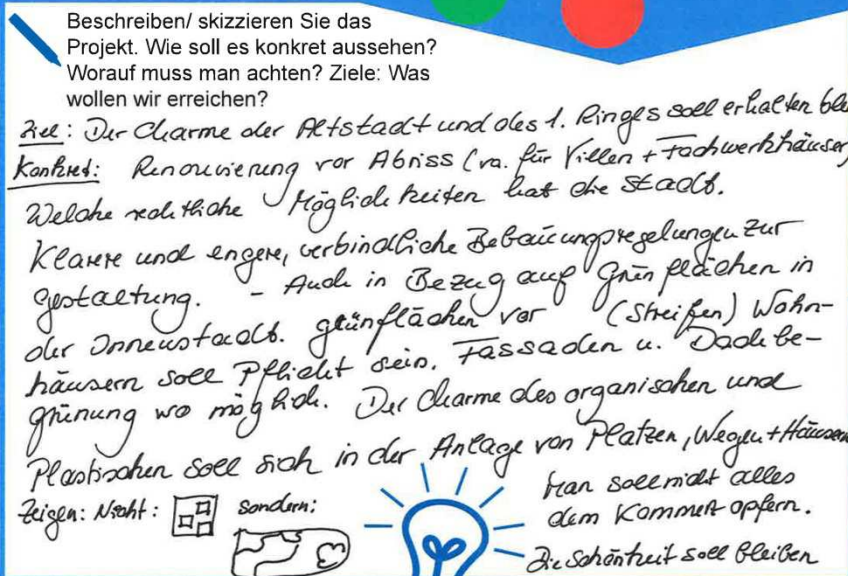 Beschreiben/ skizzieren Sie das
Projekt. Wie soll es konkret aussehen?
Worauf muss man achten? Ziele: Was
wollen wir erreichen?
Ziel: Der Charme der Altstadt und des 1. Ringes soll erhalten ble
Konkret: Renouvierung vor Abriss (va. für Villen + Fachwerkhäuser)
Welche rechtliche Möglichkeiten hat die Stadt.
Klarere und engere, verbindliche Bebauungsregelungen zur
Gestaltung. - Auch in Bezug auf Grünflächen in
der Innenstadt. Grünflächen vor (Streifen) Wohn-
häusern soll Pflicht sein. Fassaden u. Dachbe-
grünung wo möglich. Der Charme des organischen und
Plastischen soll sich in der Anlage von Plätzen, Wegen + Häusern
Zeigen: Nicht: sondern:
Man soll nicht alles
dem Kommerz opfern.
Die Schönheit soll bleiben